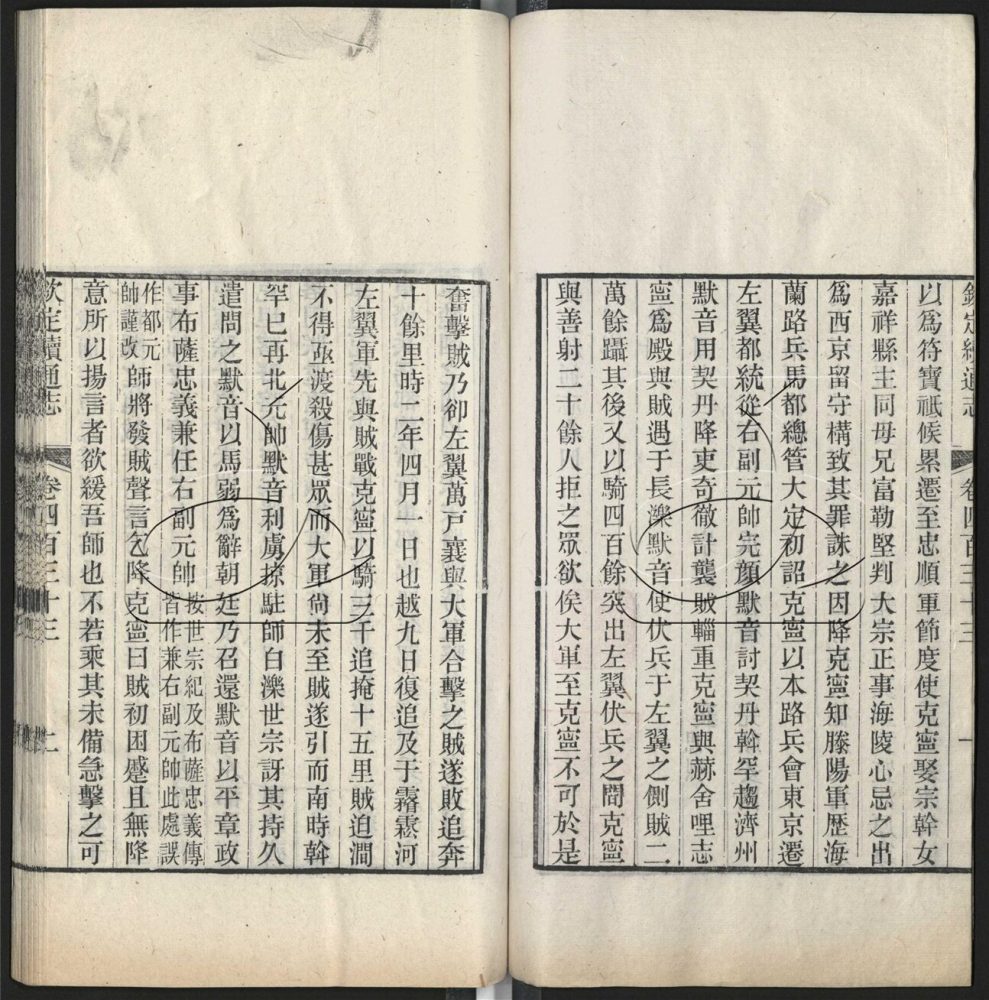 欽定續通志 卷四百三十三 一
以爲符寶祗候累遷至忠順軍節度使克寧娶宗幹女
嘉祥縣主同母兄富勒堅判大宗正事海陵心忌之出
爲西京留守構致其罪誅之因降克寧知滕陽軍歷海
蘭路兵馬都總管大定初詔克寧以本路兵會東京遷
左翼都統從右副元帥完顏默音討契丹斡罕趨濟州
默音用契丹降吏奇徹計襲賊輜重克寧與赫舍哩志
寧爲殿與賊遇于長濼默音使伏兵于左翼之側賊二
萬餘躡其後又以騎四百餘突出左翼伏兵之間克寧
與善射二十餘人拒之眾欲俟大軍至克寧不可於是
奮擊賊乃卻左翼萬戸襄與大軍合擊之賊遂敗追奔
十餘里時二年四月一日也越九日復追及于霿𩃭河
左翼軍先與賊戰克寧以騎三千追掩十五里賊迫澗
不得亟渡殺傷甚眾而大軍尙未至賊遂引而南時斡
罕巳再北元帥默音利虜掠駐師白濼世宗訝其持久
遣問之默音以馬弱爲辭朝廷乃召還默音以平章政
事布薩忠義兼任右副元帥按世宗紀及布薩忠義傳皆作兼右副元帥此處誤
作都元帥謹改師將發賊聲言乞降克寧曰賊初困蹙且無降
意所以揚言者欲緩吾師也不若乘其未備急擊之可
欽定續通志 卷四百三十三 二